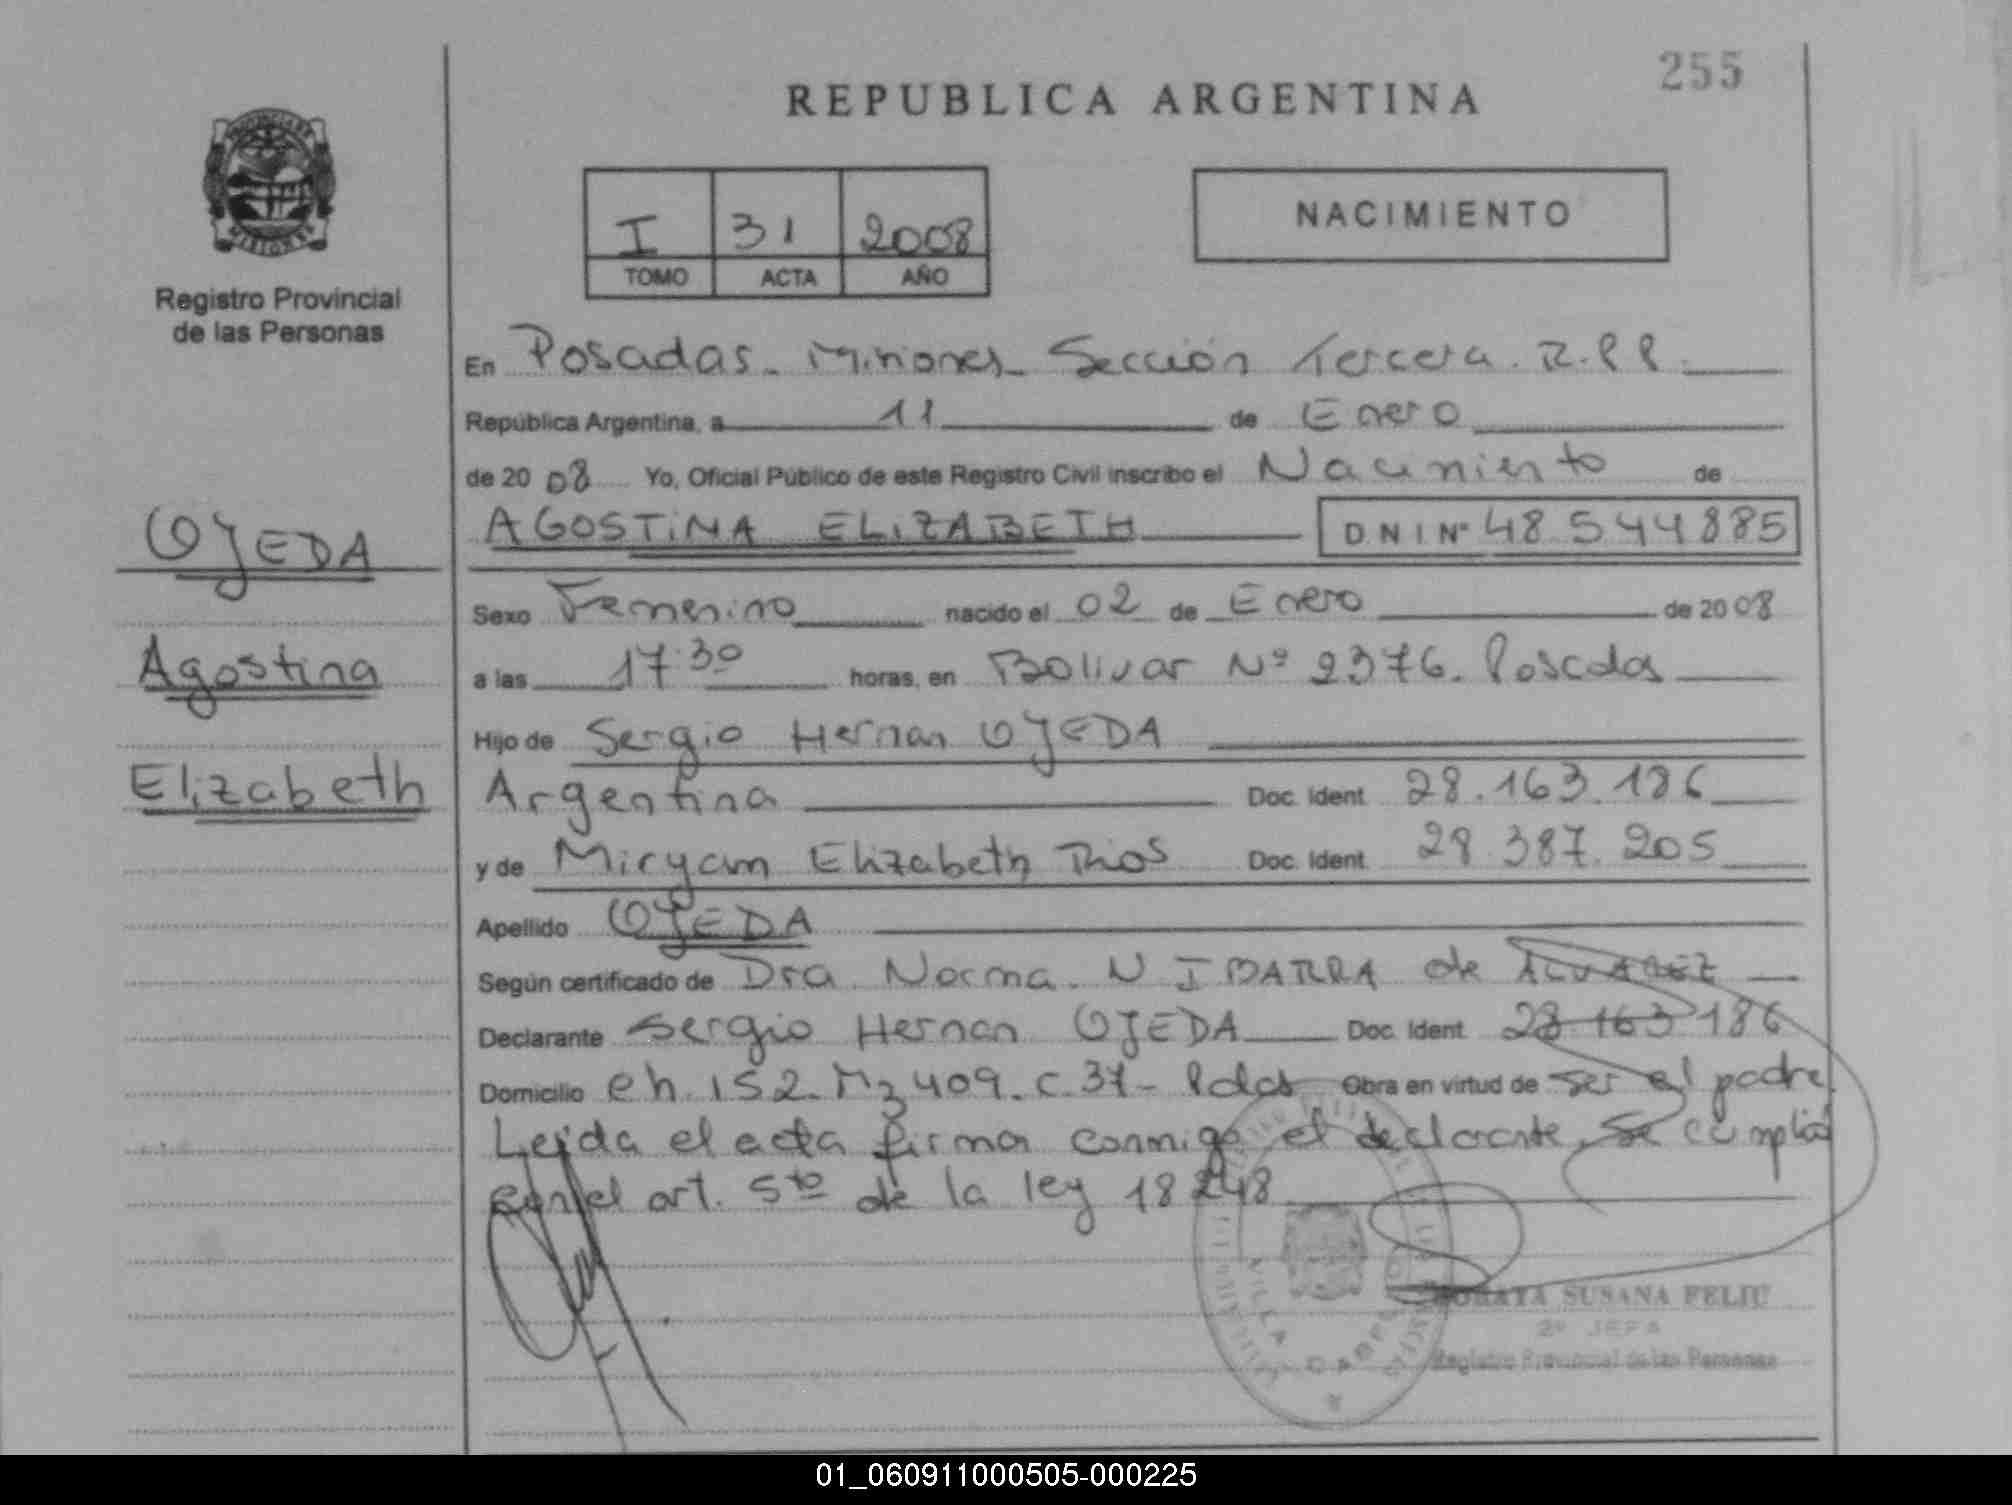 255
REPUBLICA ARGENTINA
PROVINCIA DE
MISIONES
Registro Provincial
de las Personas
I 31 2008
TOMO ACTA AÑO
NACIMIENTO
En Posadas - Misiones - Sección Tercera. R.P.P.
República Argentina, a 11 de Enero
de 2008 Yo, Oficial Público de este Registro Civil inscribo el Nacimiento de
OJEDA
AGOSTINA ELIZABETH DNI Nº 48 544885
Sexo Femenino nacido el 02 de Enero de 2008
Agostina
a las 17:30 horas, en Bolivar Nº 2376. Posadas
Hijo de Sergio Hernan OJEDA
Elizabeth
Argentina Doc. Ident 28.163.186
y de Miryam Elizabeth Rios Doc. Ident 28.387.205
Apellido OJEDA
Según certificado de Dra. Norma. N IBARRA de ALVAREZ
Declarante Sergio Hernan OJEDA Doc. Ident 28 163 186
Domicilio ch. 152. Mz 409. c. 37 - Pdas Obra en virtud de ser el padre.
Leida el acta firma conmigo el declarante, se cumplió
con el art. 5to de la ley 18248
VILLA CABELLO
SUSANA FELIU
2º JEFA
Registro Provincial de las Personas
01_060911000505-000225